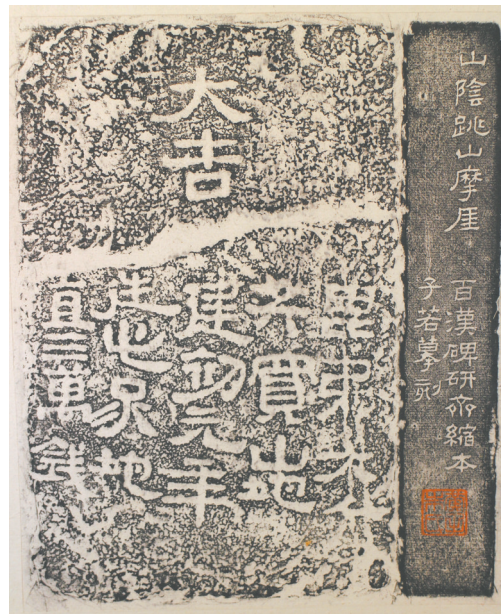 山陰跳山摩厓
百漢碑研齋縮本
子若摹刻
大吉
昆弟六人
共買山地
建初元年
造此冢地
直三萬錢